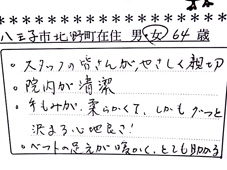 ＊＊＊＊＊＊＊＊＊＊＊＊＊＊＊＊＊＊
八王子市北野町在住 男・女 64 歳
・スタッフの皆さんが、やさしく親切
・院内が清潔
・手もみが、柔らかくて、しかもグーっと
沈まる心地良さ!
・ベットの足元が暖かく、とても助かる